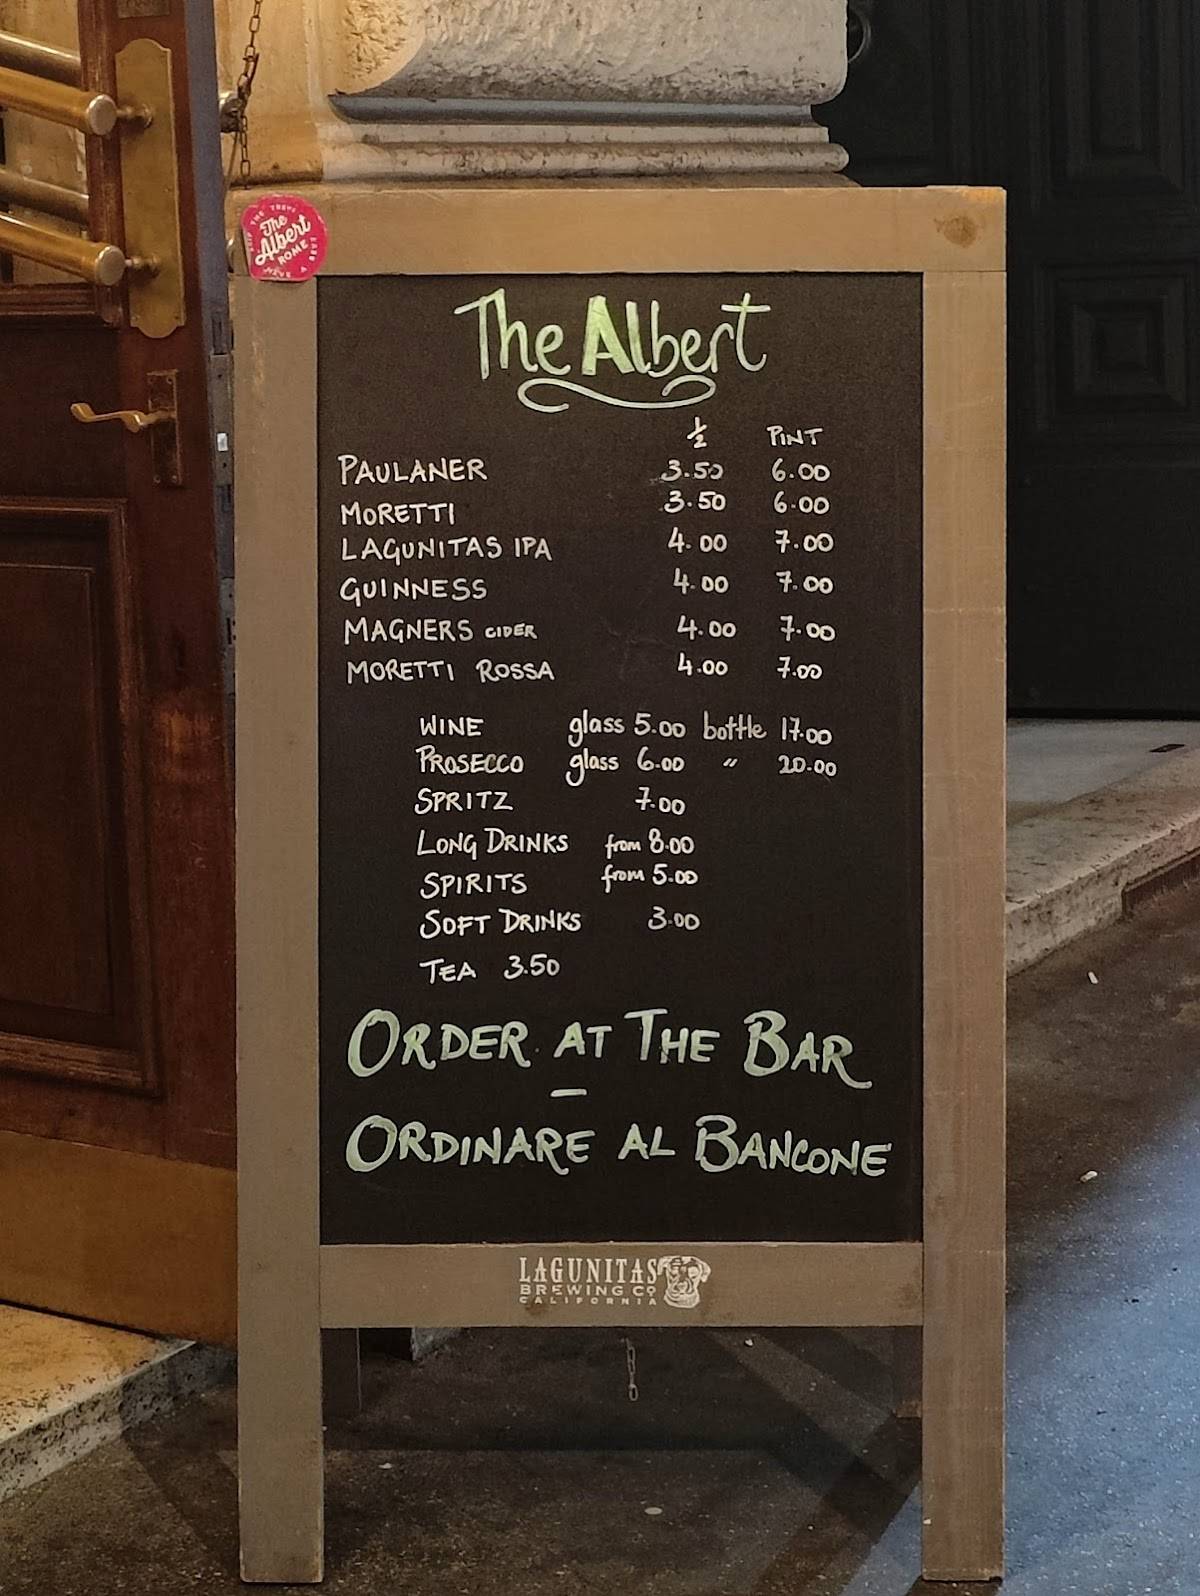 The Albert ROME
The Albert
½ PINT
PAULANER 3.50 6.00
MORETTI 3.50 6.00
LAGUNITAS IPA 4.00 7.00
GUINNESS 4.00 7.00
MAGNERS CIDER 4.00 7.00
MORETTI ROSSA 4.00 7.00
WINE glass 5.00 bottle 17.00
PROSECCO glass 6.00 " 20.00
SPRITZ 7.00
LONG DRINKS from 8.00
SPIRITS from 5.00
SOFT DRINKS 3.00
TEA 3.50
ORDER AT THE BAR
–
ORDINARE AL BANCONE
LAGUNITAS
BREWING CO
CALIFORNIA